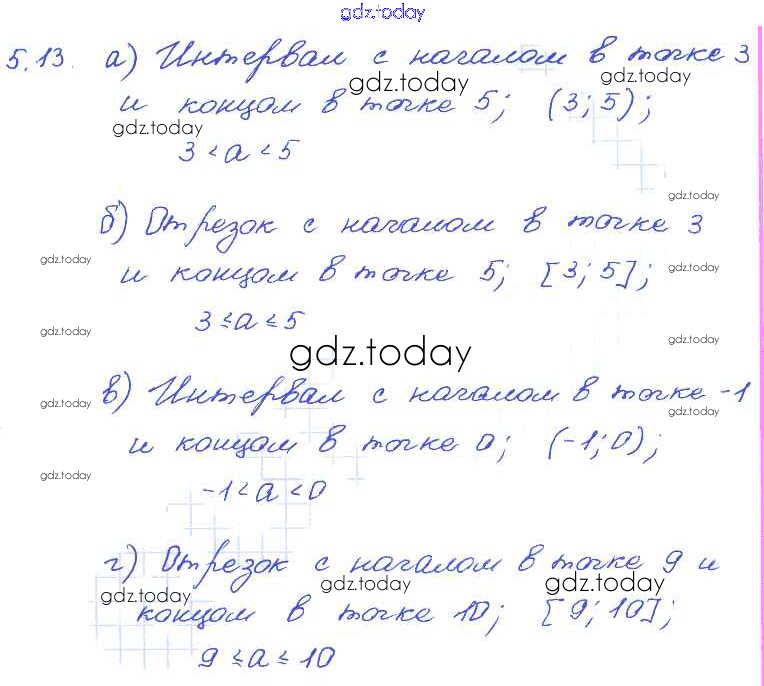 gdz.today
5.13. а) Интервал с началом в точке 3
gdz.today
gdz.today
и концом в точке 5; (3; 5);
gdz.today
3 < a < 5
gdz.today
б) Отрезок с началом в точке 3
gdz.today
и концом в точке 5; [3; 5];
gdz.today
3 ≤ a ≤ 5
gdz.today
gdz.today
gdz.today
в) Интервал с началом в точке -1
gdz.today
gdz.today
и концом в точке 0; (-1; 0);
gdz.today
-1 < a < 0
г) Отрезок с началом в точке 9 и
gdz.today
gdz.today
gdz.today
концом в точке 10; [9; 10];
9 ≤ a ≤ 10